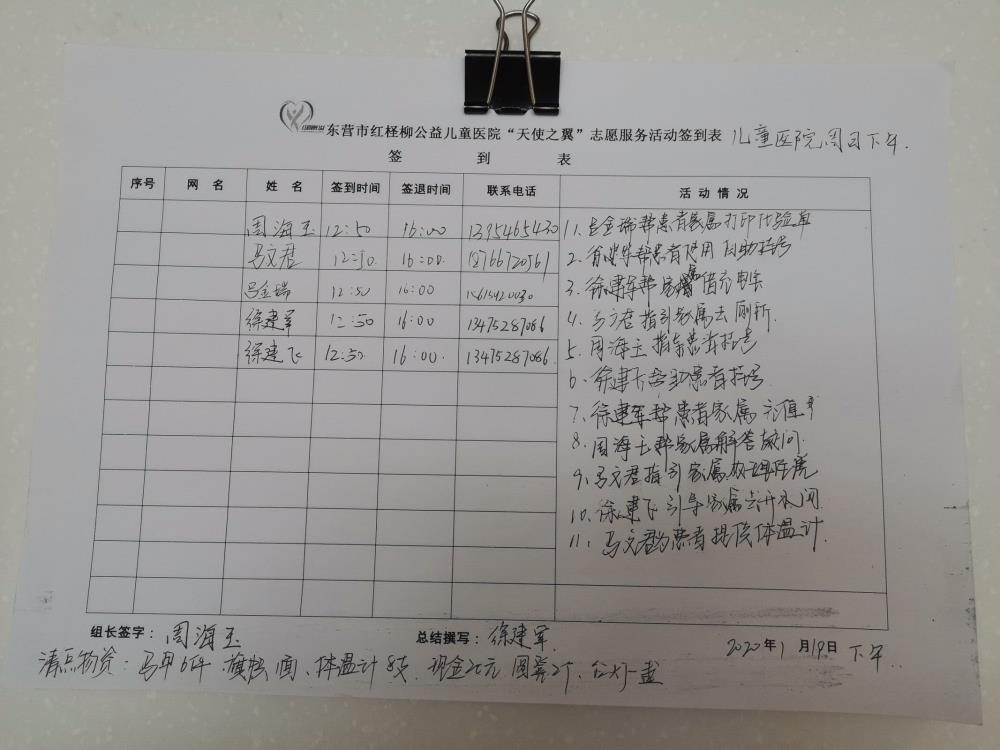 东营市红柽柳公益儿童医院“天使之翼”志愿服务活动签到表 儿童医院周日下午.
签 到 表
序号 网 名 姓 名 签到时间 签退时间 联系电话 活 动 情 况
周海玉 12:50 16:00 13954654301
马文君 12:50. 16:00. 18766720561
吕金瑞 12:50 16:00
徐建军 12:50 16:00 13475287086
徐建飞 12:50 16:00. 13475287086
1. 吕金瑞帮患者家属打印化验单
2. 徐建军帮患者使用自助挂号
3. 徐建军帮家属借充电宝
4. 马文君指引家属去厕所.
5. 周海玉指导患者挂号
6. 徐建飞帮助患者挂号
7. 徐建军帮患者家属充值
8. 周海玉帮家属解答疑问
9. 马文君指引家属办理住院
10. 徐建飞引导家属去开水间
11. 马文君为患者提供体温计.
组长签字: 周海玉 总结撰写: 徐建军 2020年1月19日 下午.
清点物资: 马甲6件 旗帜1面、体温计8支 现金